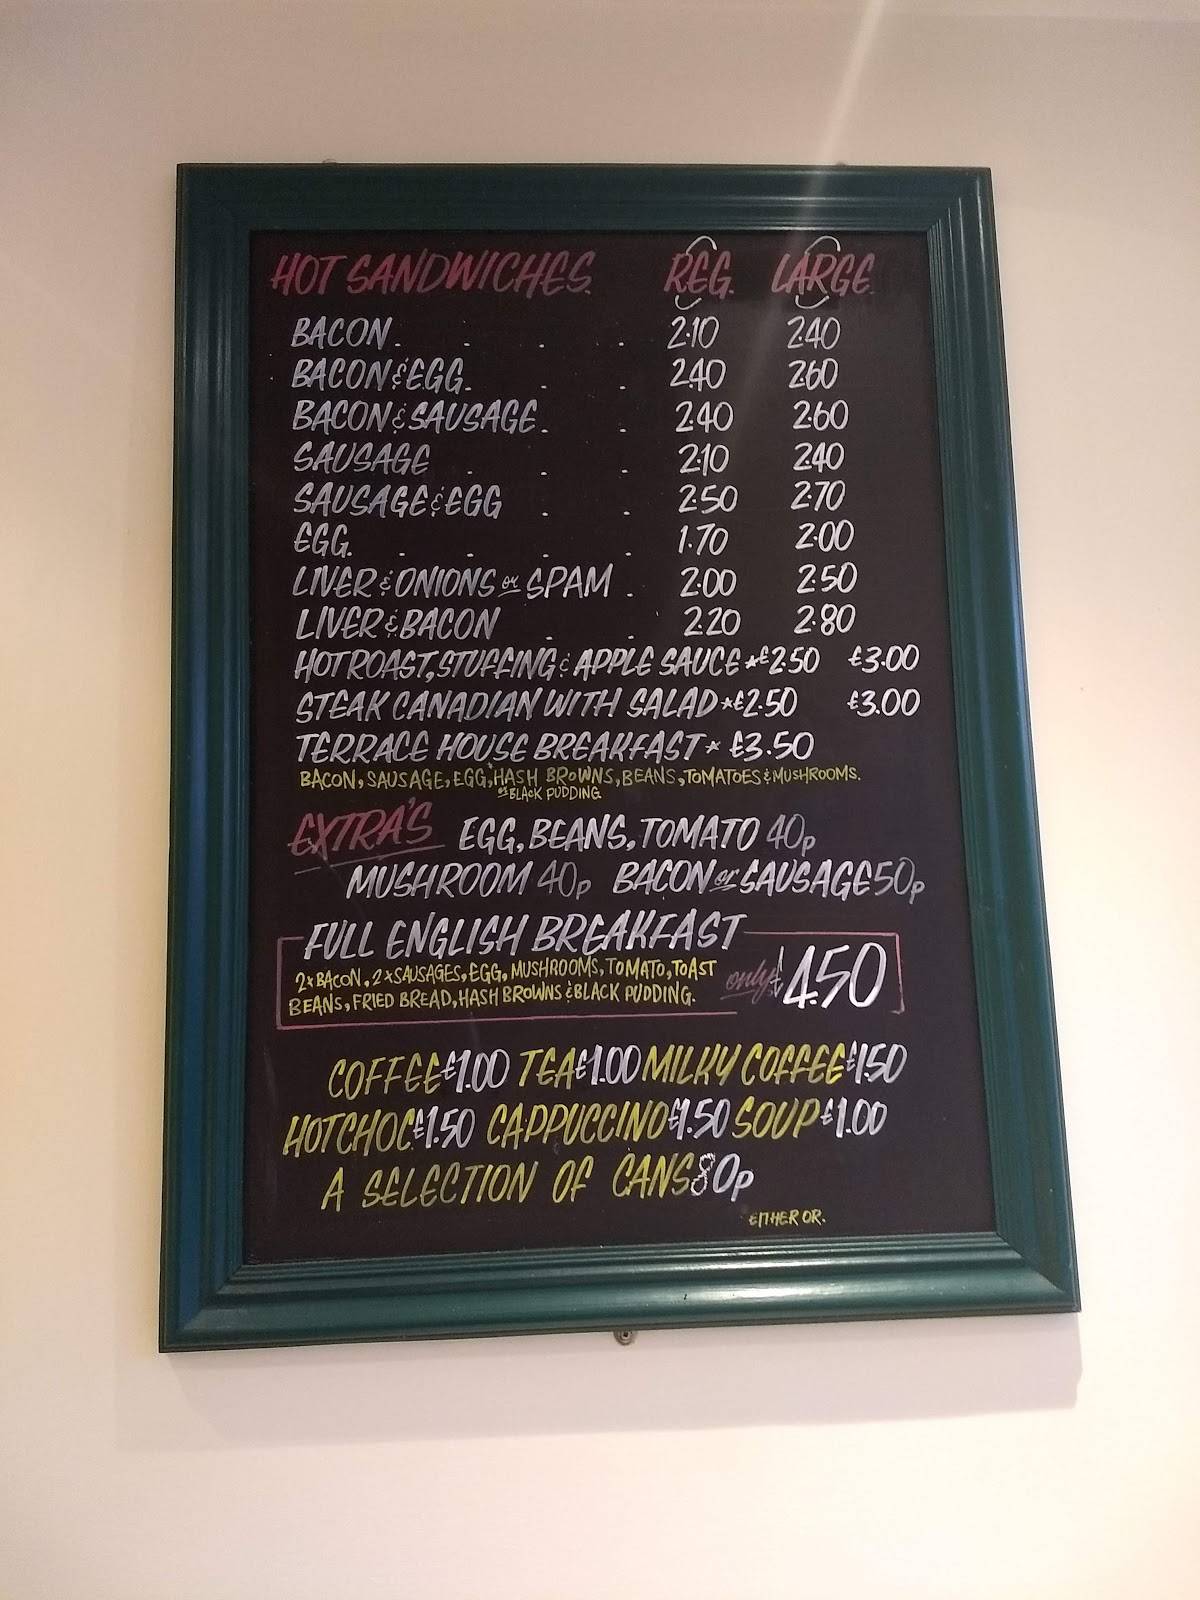 HOT SANDWICHES. REG. LARGE.
BACON. . . . 2.10 2.40
BACON & EGG. . . 2.40 2.60
BACON & SAUSAGE. . 2.40 2.60
SAUSAGE . . . 2.10 2.40
SAUSAGE & EGG . . 2.50 2.70
EGG. . . . . 1.70 2.00
LIVER & ONIONS or SPAM . 2.00 2.50
LIVER & BACON . . 2.20 2.80
HOT ROAST, STUFFING & APPLE SAUCE *£2.50 £3.00
STEAK CANADIAN WITH SALAD *£2.50 £3.00
TERRACE HOUSE BREAKFAST * £3.50
BACON, SAUSAGE, EGG, HASH BROWNS, BEANS, TOMATOES & MUSHROOMS.
or BLACK PUDDING
EXTRA'S EGG, BEANS, TOMATO 40p
MUSHROOM 40p BACON or SAUSAGE 50p
FULL ENGLISH BREAKFAST
2 x BACON, 2 x SAUSAGES, EGG, MUSHROOMS, TOMATO, TOAST
BEANS, FRIED BREAD, HASH BROWNS & BLACK PUDDING.
only £4.50
COFFEE £1.00 TEA £1.00 MILKY COFFEE £1.50
HOT CHOC £1.50 CAPPUCCINO £1.50 SOUP £1.00
A SELECTION OF CANS 80p
EITHER OR.